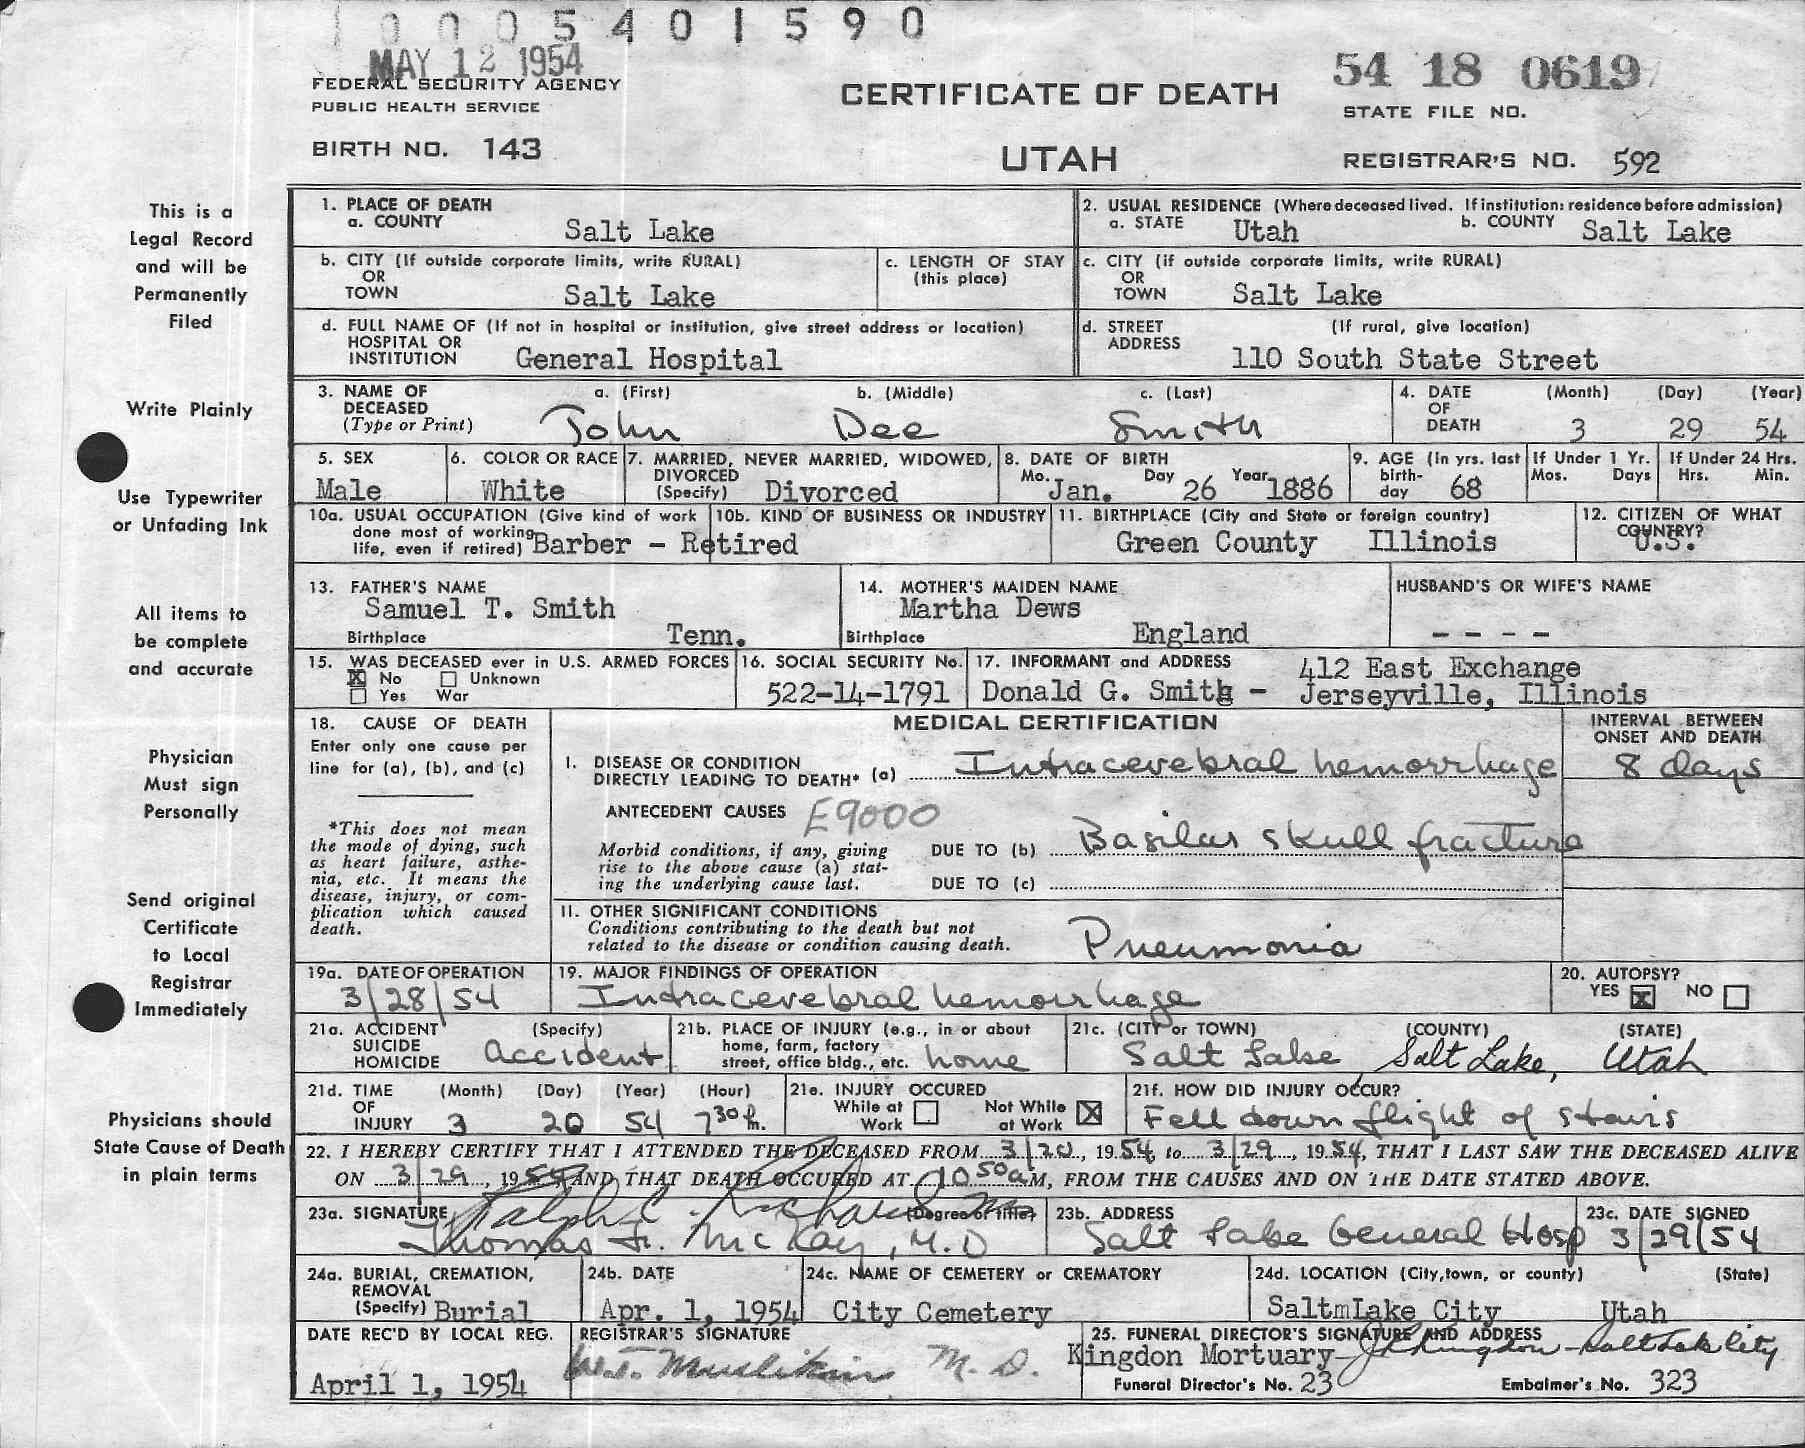 1 0 0 0 5 4 0 1 5 9 0
MAY 12 1954
FEDERAL SECURITY AGENCY
PUBLIC HEALTH SERVICE
BIRTH NO. 143
CERTIFICATE OF DEATH
UTAH
54 18 0619
STATE FILE NO.
REGISTRAR'S NO. 592
This is a
Legal Record
and will be
Permanently
Filed
Write Plainly
Use Typewriter
or Unfading Ink
All items to
be complete
and accurate
Physician
Must sign
Personally
Send original
Certificate
to Local
Registrar
Immediately
Physicians should
State Cause of Death
in plain terms
1. PLACE OF DEATH
a. COUNTY Salt Lake
2. USUAL RESIDENCE (Where deceased lived. If institution: residence before admission)
a. STATE Utah b. COUNTY Salt Lake
b. CITY (If outside corporate limits, write RURAL)
OR
TOWN Salt Lake
c. LENGTH OF STAY
(this place)
c. CITY (if outside corporate limits, write RURAL)
OR
TOWN Salt Lake
d. FULL NAME OF (If not in hospital or institution, give street address or location)
HOSPITAL OR
INSTITUTION General Hospital
d. STREET (If rural, give location)
ADDRESS 110 South State Street
3. NAME OF DECEASED (Type or Print)
a. (First) b. (Middle) c. (Last)
John Dee Smith
4. DATE OF DEATH (Month) (Day) (Year)
3 29 54
5. SEX
Male
6. COLOR OR RACE
White
7. MARRIED, NEVER MARRIED, WIDOWED,
DIVORCED
(Specify) Divorced
8. DATE OF BIRTH
Mo. Jan. Day 26 Year 1886
9. AGE (In yrs. last
birth-
day 68
If Under 1 Yr.
Mos. Days
If Under 24 Hrs.
Hrs. Min.
10a. USUAL OCCUPATION (Give kind of work
done most of working
life, even if retired) Barber - Retired
10b. KIND OF BUSINESS OR INDUSTRY
11. BIRTHPLACE (City and State or foreign country)
Green County Illinois
12. CITIZEN OF WHAT
COUNTRY?
U.S.
13. FATHER'S NAME
Samuel T. Smith
Birthplace Tenn.
14. MOTHER'S MAIDEN NAME
Martha Dews
Birthplace England
HUSBAND'S OR WIFE'S NAME
- - - -
15. WAS DECEASED ever in U.S. ARMED FORCES
X No Unknown
Yes War
16. SOCIAL SECURITY No.
522-14-1791
17. INFORMANT and ADDRESS 412 East Exchange
Donald G. Smith - Jerseyville, Illinois
18. CAUSE OF DEATH
Enter only one cause per
line for (a), (b), and (c)
*This does not mean
the mode of dying, such
as heart failure, asthe-
nia, etc. It means the
disease, injury, or com-
plication which caused
death.
MEDICAL CERTIFICATION
INTERVAL BETWEEN
ONSET AND DEATH
I. DISEASE OR CONDITION
DIRECTLY LEADING TO DEATH* (a) Intracerebral hemorrhage 8 days
ANTECEDENT CAUSES E9000
Morbid conditions, if any, giving
rise to the above cause (a) stat-
ing the underlying cause last.
DUE TO (b) Basilar skull fracture
DUE TO (c)
II. OTHER SIGNIFICANT CONDITIONS
Conditions contributing to the death but not
related to the disease or condition causing death. Pneumonia
19a. DATE OF OPERATION
3/28/54
19. MAJOR FINDINGS OF OPERATION
Intracerebral hemorrhage
20. AUTOPSY?
YES X NO
21a. ACCIDENT (Specify)
SUICIDE
HOMICIDE accident
21b. PLACE OF INJURY (e.g., in or about
home, farm, factory
street, office bldg., etc. home
21c. (CITY or TOWN) (COUNTY) (STATE)
Salt Lake, Salt Lake, Utah
21d. TIME (Month) (Day) (Year) (Hour)
OF
INJURY 3 20 54 7 30 P m.
21e. INJURY OCCURED
While at
Work
Not While
at Work X
21f. HOW DID INJURY OCCUR?
Fell down flight of stairs
22. I HEREBY CERTIFY THAT I ATTENDED THE DECEASED FROM 3/20, 1954 to 3/29, 1954, THAT I LAST SAW THE DECEASED ALIVE
ON 3/29, 1954, AND THAT DEATH OCCURED AT 10 50 a M, FROM THE CAUSES AND ON THE DATE STATED ABOVE.
23a. SIGNATURE (Degree or title)
Ralph C. Richards MD
Thomas F. McKay, M.D
23b. ADDRESS
Salt Lake General Hosp
23c. DATE SIGNED
3/29/54
24a. BURIAL, CREMATION,
REMOVAL
(Specify) Burial
24b. DATE
Apr. 1, 1954
24c. NAME OF CEMETERY or CREMATORY
City Cemetery
24d. LOCATION (City, town, or county) (State)
SaltmLake City Utah
DATE REC'D BY LOCAL REG.
April 1, 1954
REGISTRAR'S SIGNATURE
M. D.
25. FUNERAL DIRECTOR'S SIGNATURE AND ADDRESS
Kingdon Mortuary - Salt Lake City
Funeral Director's No. 23 Embalmer's No. 323